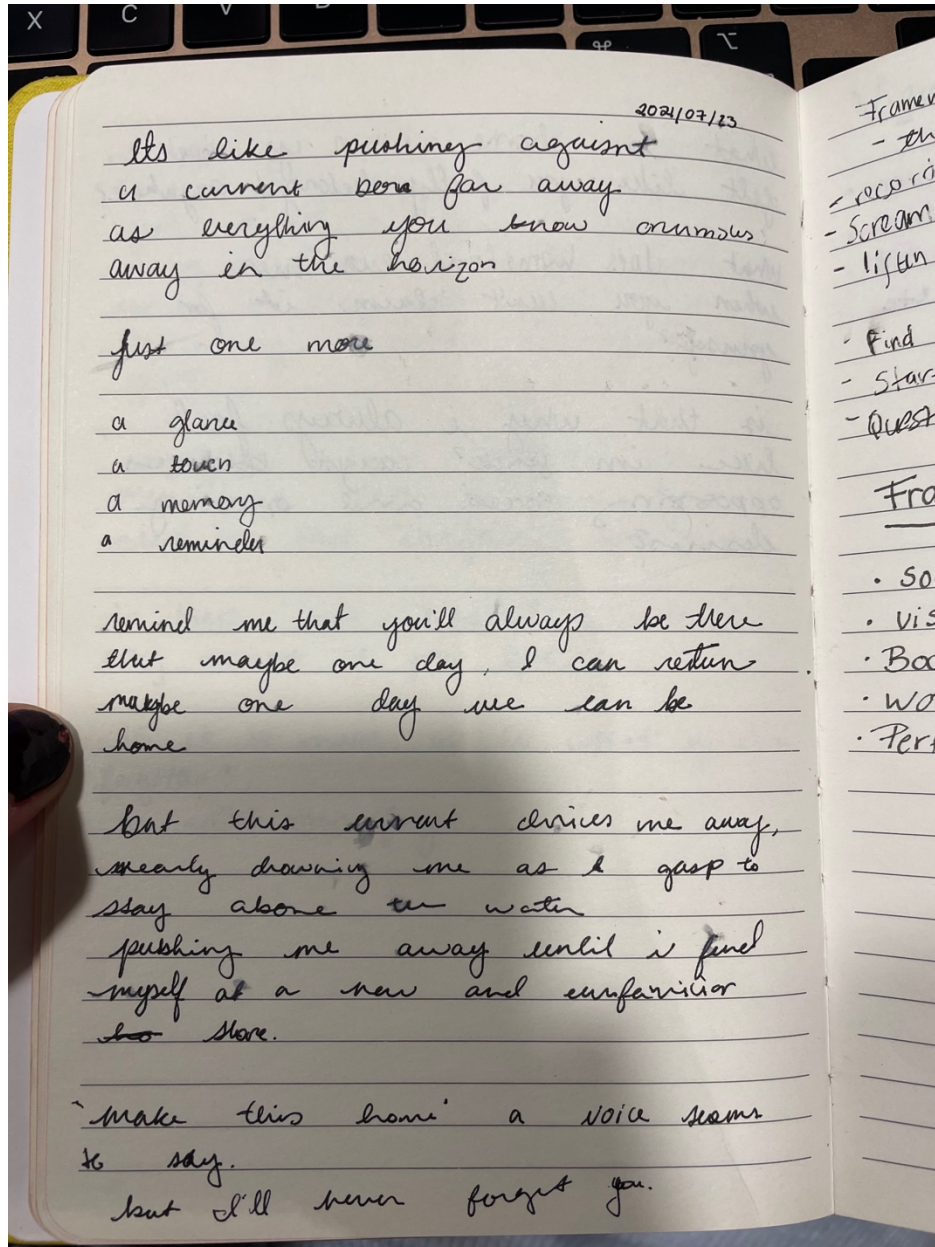 2021/07/23
Its like pushing agaisnt
a current far away
as everything you know
away in the horizon
just one more
a glance
a touch
a memory
a reminder
remind me that you'll always be there
that maybe one day, I can return
maybe one day we can be
home
but this current drives me away,
nearly drowning me as I gasp to
stay above the water
pushing me away until i find
myself at a new and unfamiliar
shore.
'make this home' a voice seams
to say.
but I'll never forget you.
Framew
- th
- recorri
- Scream
- listen
- Find
- Star
- Quest
Fra
• So
• vis
• Boo
• wo
• Perf
X
C
V
⌘
⌥